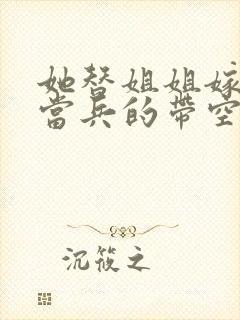 她替姐姐嫁
當兵的帶空
沉筱之